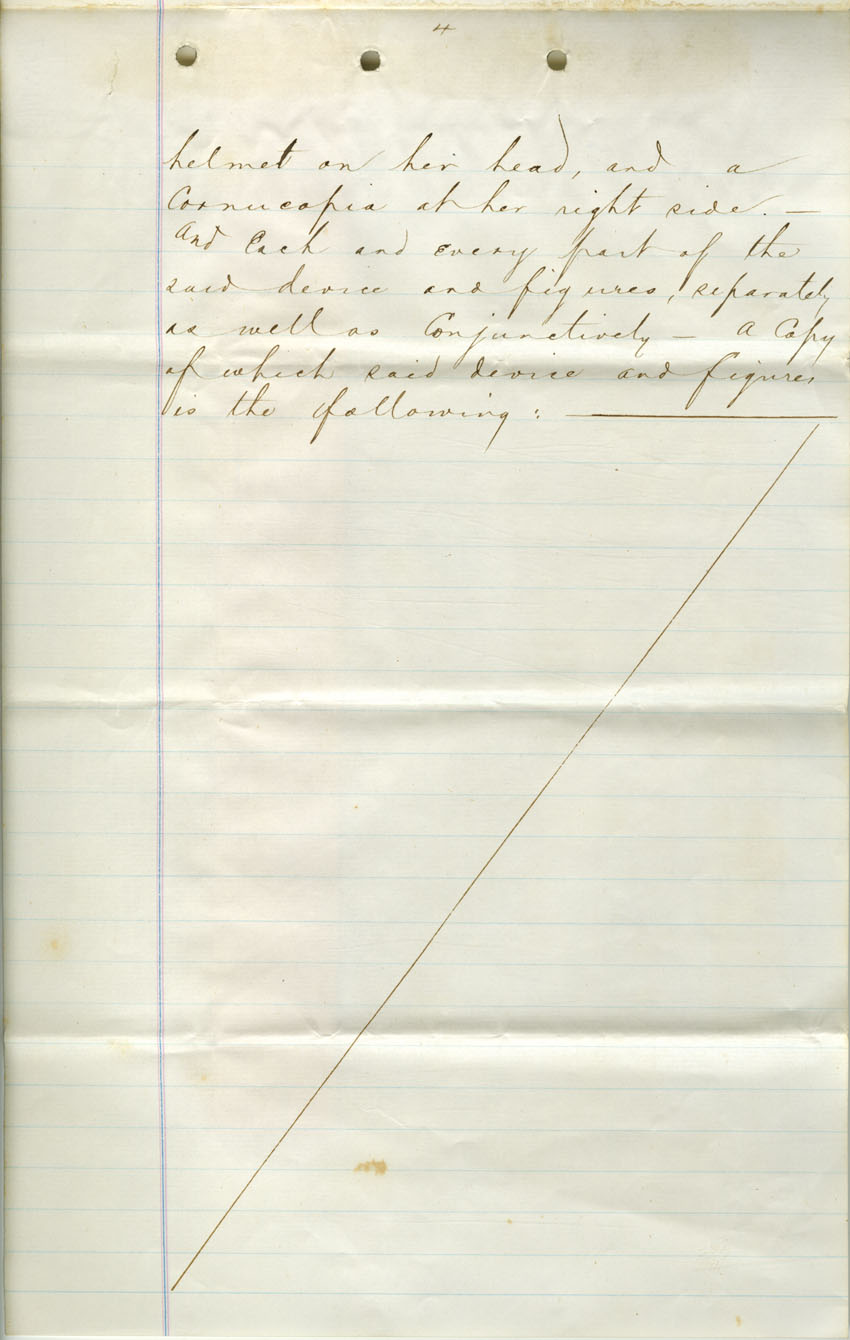 4
helmet on her head, and a
Cornucopia at her right side. —
And Each and every part of the
said device and figures, separately
as well as Conjunctively — A Copy
of which said device and figures
is the following: —